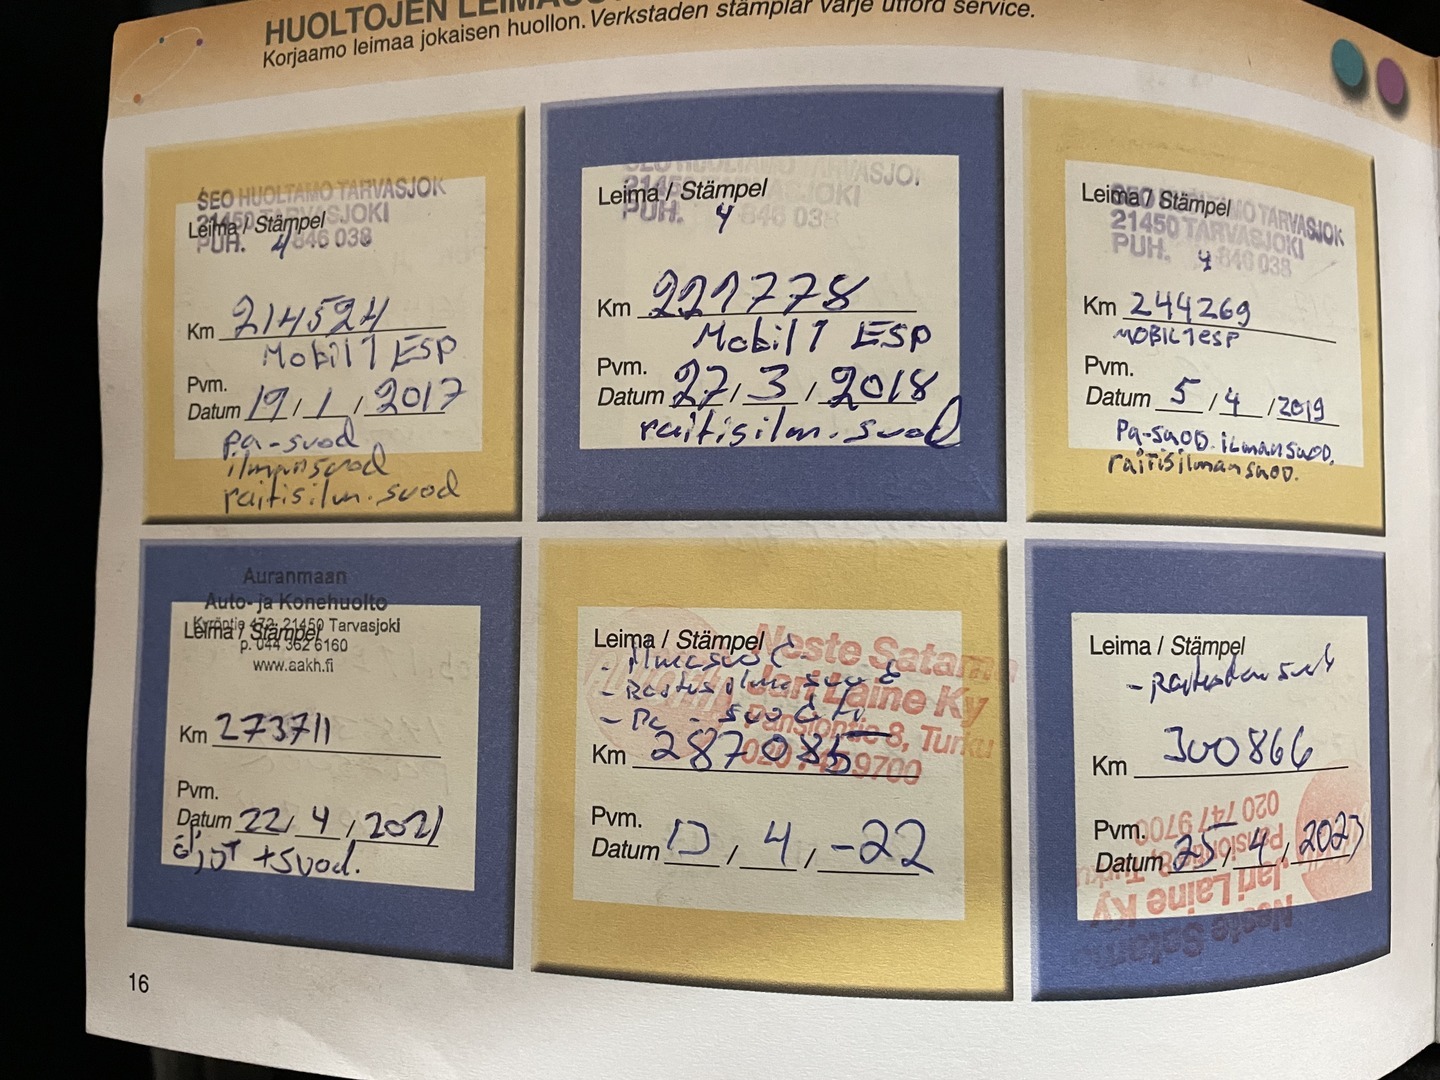 HUOLTOJEN
Korjaamo leimaa jokaisen huollon. Verkstaden stämplar varje utförd service.
SEO HUOLTAMO TARVASJOK
21450 TARVASJOKI
Leima / Stämpel
PUH. 4 846 038
Km 214524
Mobil 1 ESP
Pvm.
Datum 19 / 1 / 2017
Pa-suod
ilmansuod
raitisilm. suod
SEO HUOLTAMO TARVASJOK
Leima / Stämpel
21450 TARVASJOKI
PUH. 4 846 038
Km 221778
Mobil 1 ESP
Pvm.
Datum 27 / 3 / 2018
raitisilm. suod
Leima / Stämpel
SEO HUOLTAMO TARVASJOK
21450 TARVASJOKI
PUH. 4 846 038
Km 244269
MOBIL 1 ESP
Pvm.
Datum 5 / 4 / 2019
Pa-SUOD. ilmansuod.
raitisilmansuod.
Auranmaan
Auto- ja Konehuolto
Kyröntie 472, 21450 Tarvasjoki
Leima / Stämpel
p. 044 362 6160
www.aakh.fi
Km 273711
Pvm.
Datum 22 / 4 / 2021
öljyt + suod.
Leima / Stämpel
Neste Satama
Jari Laine Ky
Pansiontie 8, Turku
Km 287085
Pvm.
Datum / 4 / -22
Leima / Stämpel
Km 300866
Pvm.
Datum 25 / 4 / 2023
020 747 9700
Pansiontie 8, Turku
Jari Laine Ky
Neste Satama
16